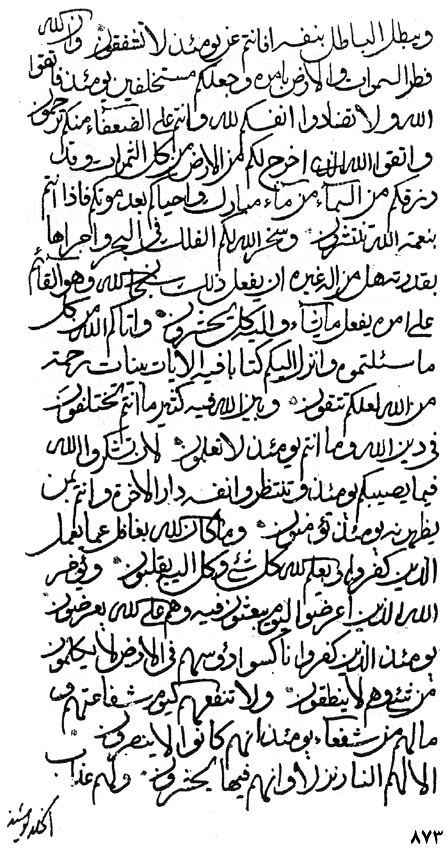 ويبطل الباطل بنفسه افانتم عن يومئذ لا تشفقون وان الله
فطر السموات والارض بامره وجعلكم مستخلفين يومئذ فاتقوا
الله ولا تضادوا انفسكم لله وانتم على الضعفاء منكم ترحمون
واتقوا الله اخرج لكم من الارض من اكل الثمرات وقد
رزقكم من السماء من ماء مبارك واحياكم بعد موتكم فاذا انتم
بنعمة الله تنتشرون وسخر الله لكم الفلك في البحر واجراها
بقدرته هل من اله غيره ان يفعل ذلك سبحان الله وهو القائم
على امره يفعل ما يشاء واليه كل يحشرون واتاكم الله من كل
ما سئلتموه وانزل اليكم كتابا فيه الايات بينات رحمة
من الله لعلكم تتقون وبين الله فيه كثير ما انتم تختلفون
في دين الله وما انتم يومئذ لا تعلمون لان تشكروا الله
فيما يصيبكم يومئذ وتنتظروا انفسه دار الاخرة وانتم بمن
يظهرنه يومئذ تؤمنون وما كان الله بغافل عما يعمل
الذين كفروا بلى يعلم الله كل شئ وكل اليه يقلبون وفي
الله الذين اعرضوا اليوم يبعثون فيه وهم على الله يعرضون
يومئذ الذين كفروا ناكسوا رؤسهم في الارض لا يكلمون
من شئ وهم لا ينطقون ولا تنفعهم كيوم شفاعتهم و
ما لهم من شفعاء يومئذ انهم كانوا لا ينصرون
الا لهم النار نزلا وانهم فيها يحشرون ولهم عذاب
الخلد يومئذ
٨٧٣